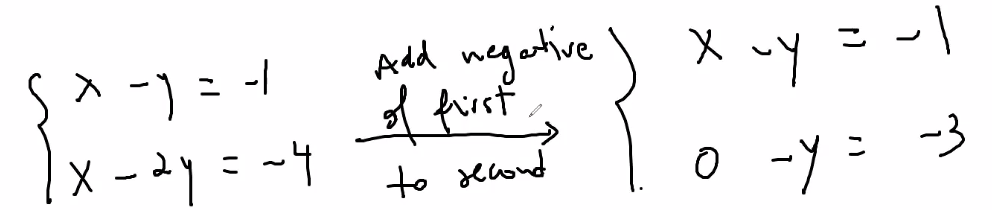 x - y = -1
x - 2y = -4
Add negative
of first
to second
x - y = -1
0 - y = -3